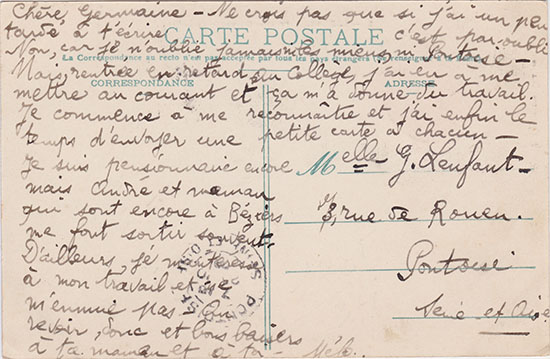 Chère Germaine - Ne crois pas que si j'ai un peu
tardé à t'écrire c'est par oubli
CARTE POSTALE
Non, car je n'oublie jamais mes amies ni Pontoise -
La Correspondance au recto n'est pas acceptée par tous les pays étrangers (Se renseigner
Mais, rentrée en retard au Collège, j'ai eu à me
CORRESPONDANCE
ADRESSE
mettre au courant et ça m'a donné du travail.
Je commence à me reconnaître et j'ai enfin le
temps d'envoyer une petite carte à chacun -
Je suis pensionnaire encore
mais André et maman
qui sont encore à Béziers
me font sortir souvent.
D'ailleurs, je m'intéresse
à mon travail et ne
m'ennuie pas. Au
revoir, donc et bons baisers
à ta maman et à ta
Melle G. Lenfant -
3, rue de Rouen.
Pontoise
Seine et Oise